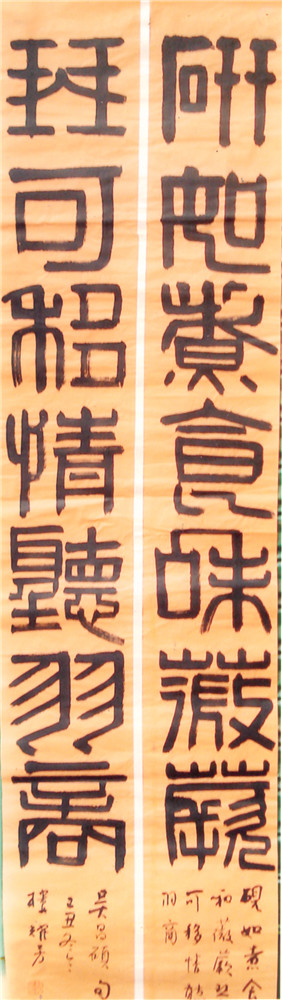 研如煮食和薇蕨
琴可移情聽羽商
硯如煮食
和薇蕨琴
可移情聽
羽商
吳昌碩句
乙丑冬
樓耀芳